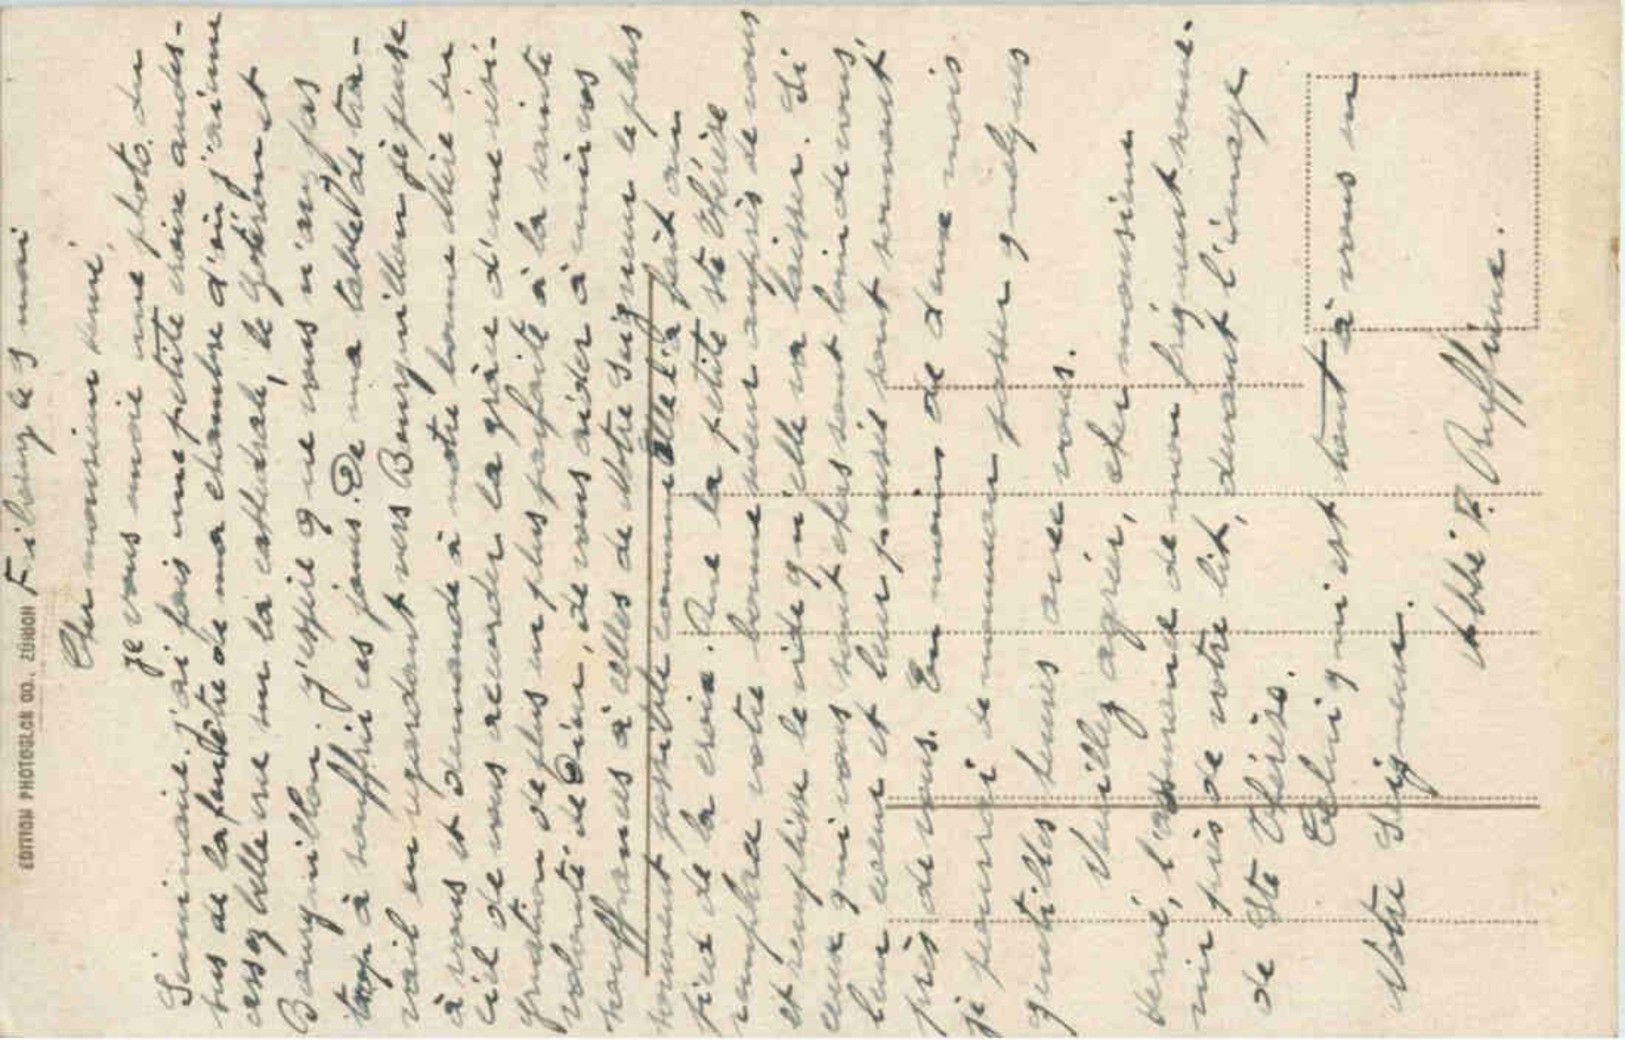 EDITION PHOTOGLOB CO., ZÜRICH
Fribourg le 5 mai
Cher monsieur
je vous envoie une photo du
Séminaire. j'ai fais une petite croix au des-
sus de la fenêtre de ma chambre d'où j'ai une
assez belle vue sur la cathédrale, le Gottéron et
Bourguillon. j'espère que vous n'avez pas
trop à souffrir ces jours. De ma table de tra-
vail en regardant vers Bourguillon je pense
à vous et demande à notre bonne Mère du
ciel de vous accorder la grâce d'une rési-
gnation de plus en plus parfaite à la sainte
volonté de Dieu, de vous aider à unir vos
souffrances à celles de Notre Seigneur le plus
souvent possible comme elle l'a fait au
pied de la croix. Que la petite Ste Thérèse
remplace votre bonne soeur auprès de vous
et remplisse le vide qu'elle va laisser. Si
ceux qui vous sont chers sont loin de vous
leur coeur et leur pensée sont souvent
près de vous. En moins de deux mois
je pourrai de nouveau passer quelques
gentilles heures avec vous.
Veuillez agréer, cher monsieur
l'assurance de mon fréquent souve-
nir près de votre lit, devant l'image
de Ste Thérèse.
Celui qui est tout à vous en
Notre Seigneur.
Abbé P. Ruffieux.